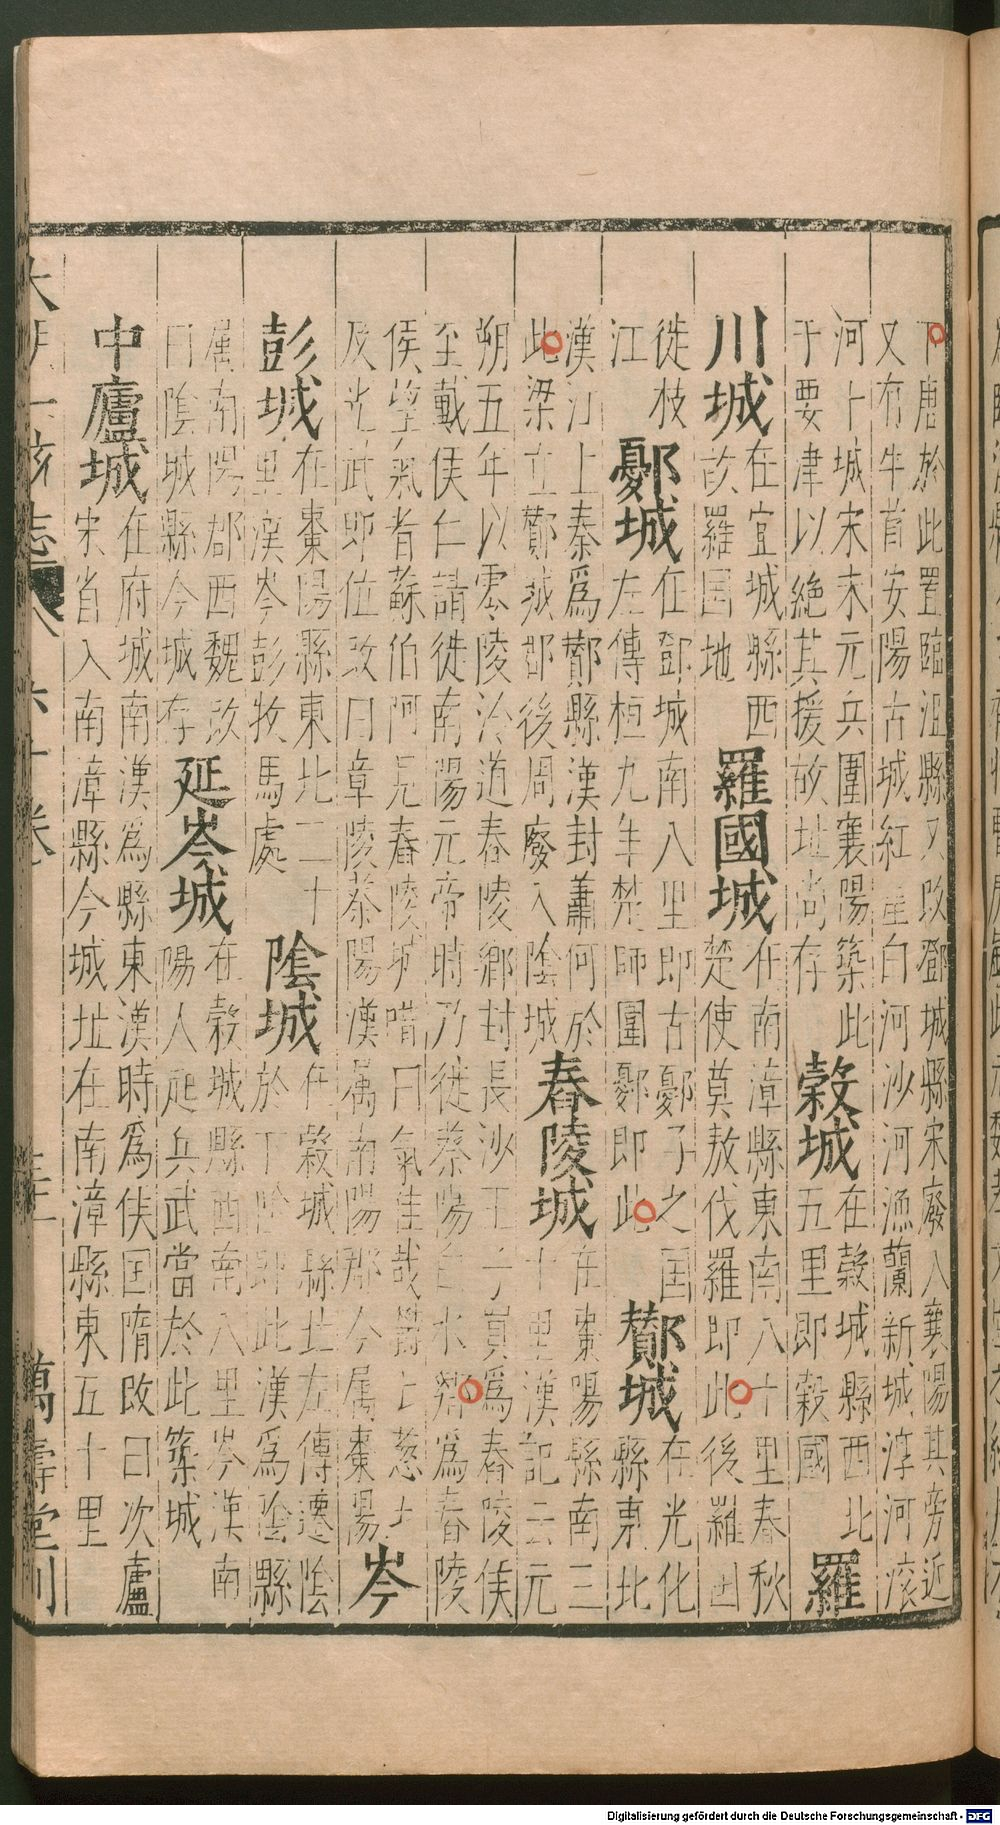 下唐於此置臨沮縣又改鄧城縣宋廢入襄陽其旁近
又有牛首安陽古城紅崖白河沙河漁蘭新城淳河滾
河十城宋末元兵圍襄陽築此
于要津以絶其援故址尚存
穀城
在穀城縣西北
五里即穀國
羅
川城
在宜城縣西
故羅國地
羅國城
在南漳縣東南八十里春秋
楚使莫敖伐羅即此後羅国
徙枝
江
鄾城
在鄧城南八里即古鄾子之国
左傳桓九年楚師圍鄾即此
酇城
在光化
縣東北
漢江上秦爲酇縣漢封蕭何於
此梁立酇城郡後周廢入陰城
舂陵城
在棗陽縣南三
十里漢記云元
朔五年以零陵泠道舂陵鄉封長沙王子買爲舂陵侯
至戴侯仁請徙南陽元帝時乃徙蔡陽白水鄉爲舂陵
侯望氣者蘇伯阿見舂陵城唶曰氣佳哉鬱鬱葱葱
及光武即位改曰章陵蔡陽漢属南陽郡今属棗陽
岑
彭城
在棗陽縣東北二十
里漢岑彭牧馬處
陰城
在穀城縣北左傳遷陰
於下陰即此漢爲陰縣
属南陽郡西魏改
曰陰城縣今城存
延岑城
在穀城縣西南八里岑漢南
陽人起兵武當於此築城
中廬城
在府城南漢爲縣東漢時爲侯国隋改曰次廬
宋省入南漳縣今城址在南漳縣東五十里
大明一統志 六十卷 萬壽堂刊
Digitalisierung gefördert durch die Deutsche Forschungsgemeinschaft - DFG